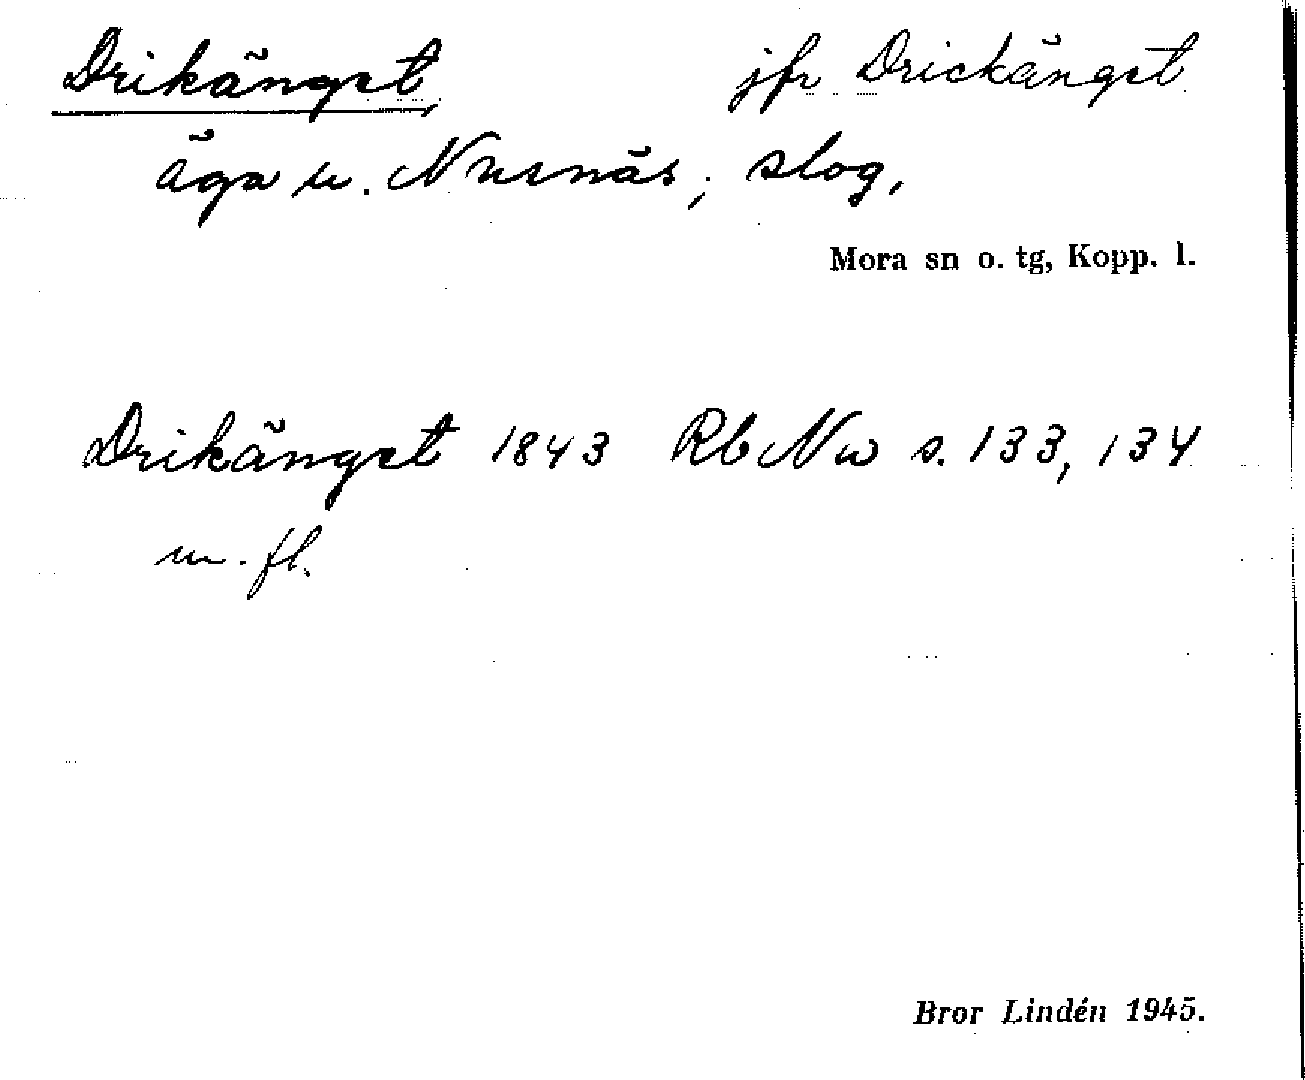 Drikängst, jfr Drickängst
äga u. Nusnäs; slog,
Mora sn o. tg, Kopp. l.
Drikängst 1843 Rb Nw s. 133, 134
m. fl.
Bror Lindén 1945.